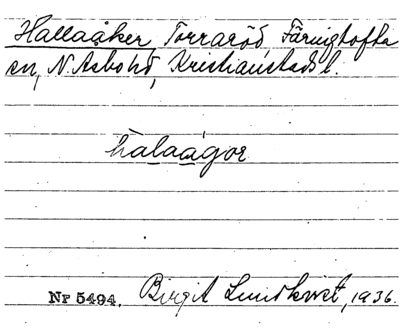 Hallaåker Torraröd Färingtofta
sn, N. Åsbo hd, Kristianstads l.
halaågor
Nr 5494. Birgit Lundkvist, 1936.